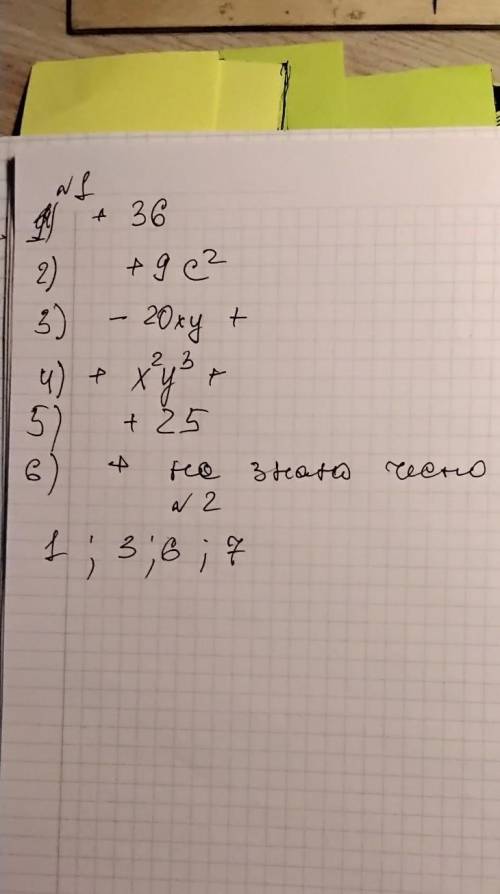 №1
1) + 36
2) +9c²
3) - 20xy +
4) + x²y³ +
5) + 25
6) + не знаю чесно
№2
1 ; 3 ; 6 ; 7